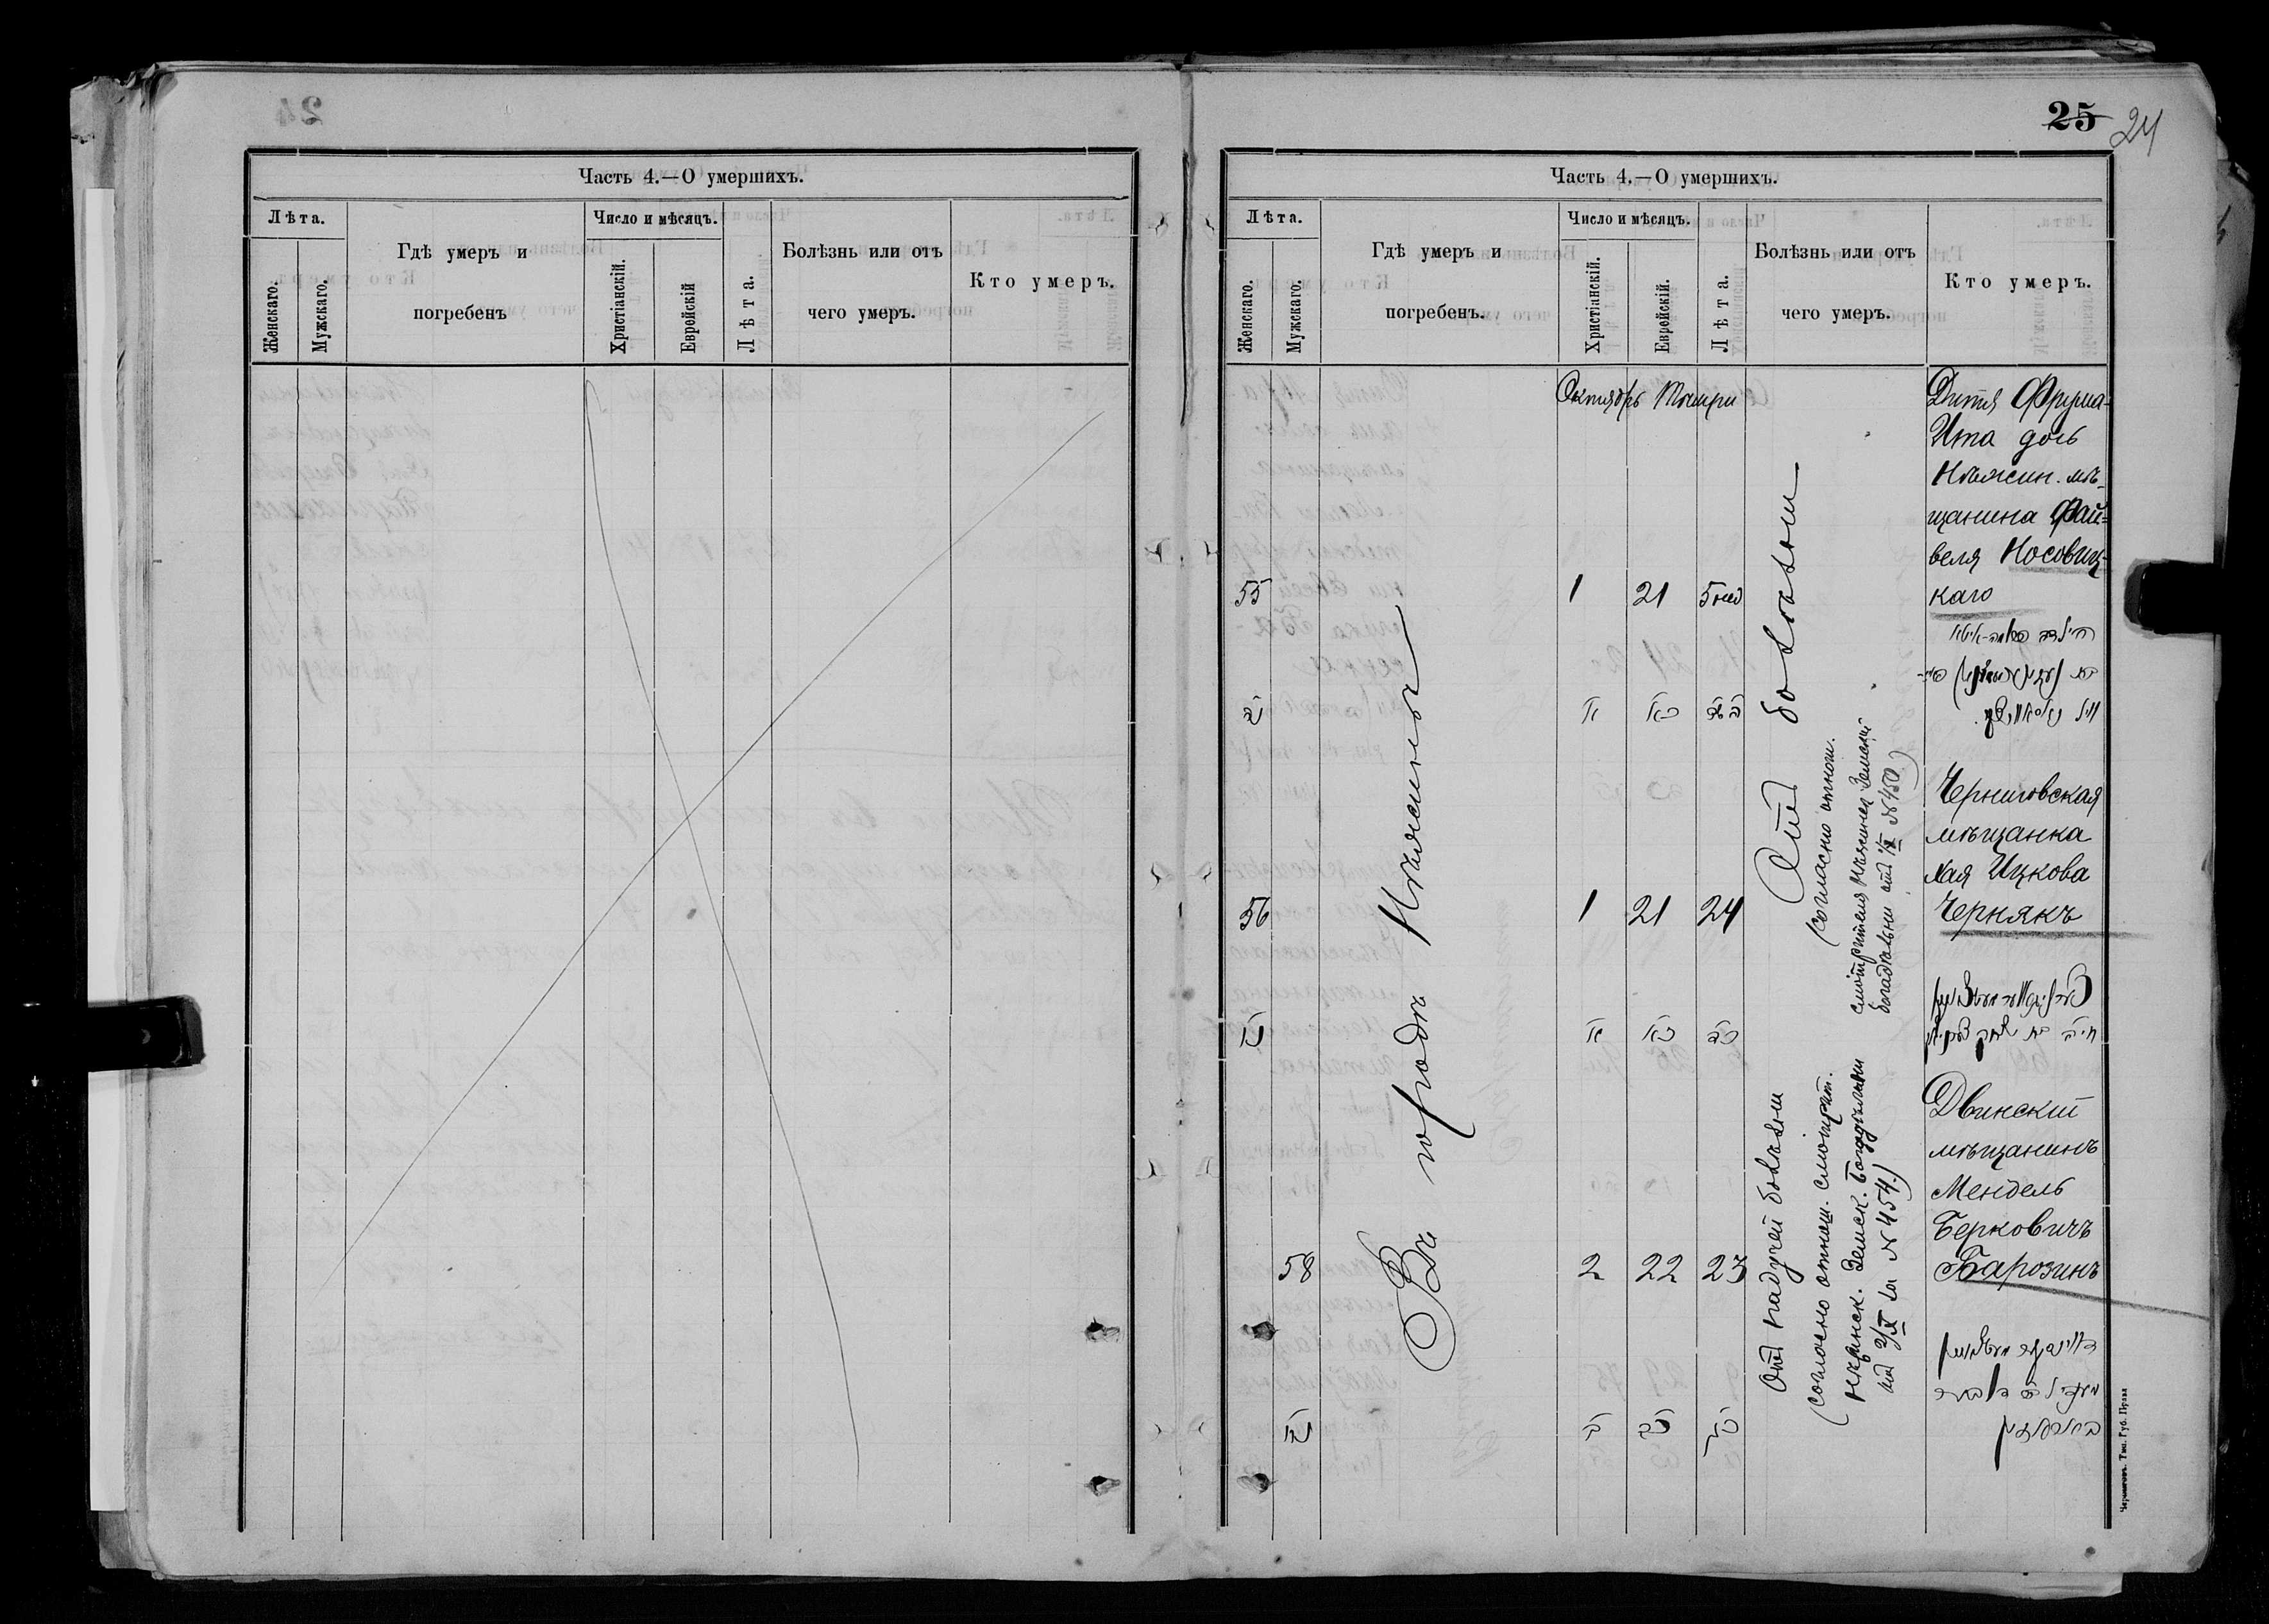 Часть 4.—О умершихъ.
Лѣта.
Женскаго.
Мужскаго.
Гдѣ умеръ и
погребенъ
Число и мѣсяцъ.
Христіанскій.
Еврейскій
Лѣта.
Болѣзнь или отъ
чего умеръ.
Кто умеръ.
25 24
Часть 4.—О умершихъ.
Лѣта.
Женскаго.
Мужскаго.
Гдѣ умеръ и
погребенъ.
Число и мѣсяцъ.
Христіанскій.
Еврейскій.
Лѣта.
Болѣзнь или отъ
чего умеръ.
Кто умеръ.
Октябрь Тишри
Въ городѣ Нѣжинѣ
55
1 21 5 нед
Отъ болѣзни
Дитя Фрума-
Ита дочь
Нѣжин. мѣ-
щанина Фай-
веля Носовиц-
каго
א כא
56
1 21 24
(согласно отнош.
смотрителя Нѣжинск Земской
богадѣльни отъ 1/X № 450)
Черниговская
мѣщанка
Хая Ицкова
Чернякъ
א כא כד
58
2 22 23
Отъ падучей болѣзни
(согласно отнош. смотрит.
Нѣжинск. Земск. Богадѣльни
отъ 2/X за № 454.)
Двинскій
мѣщанинъ
Мендель
Берковичъ
Барозинъ
ב כב כג
Черниговъ. Тип. Губ. Правл